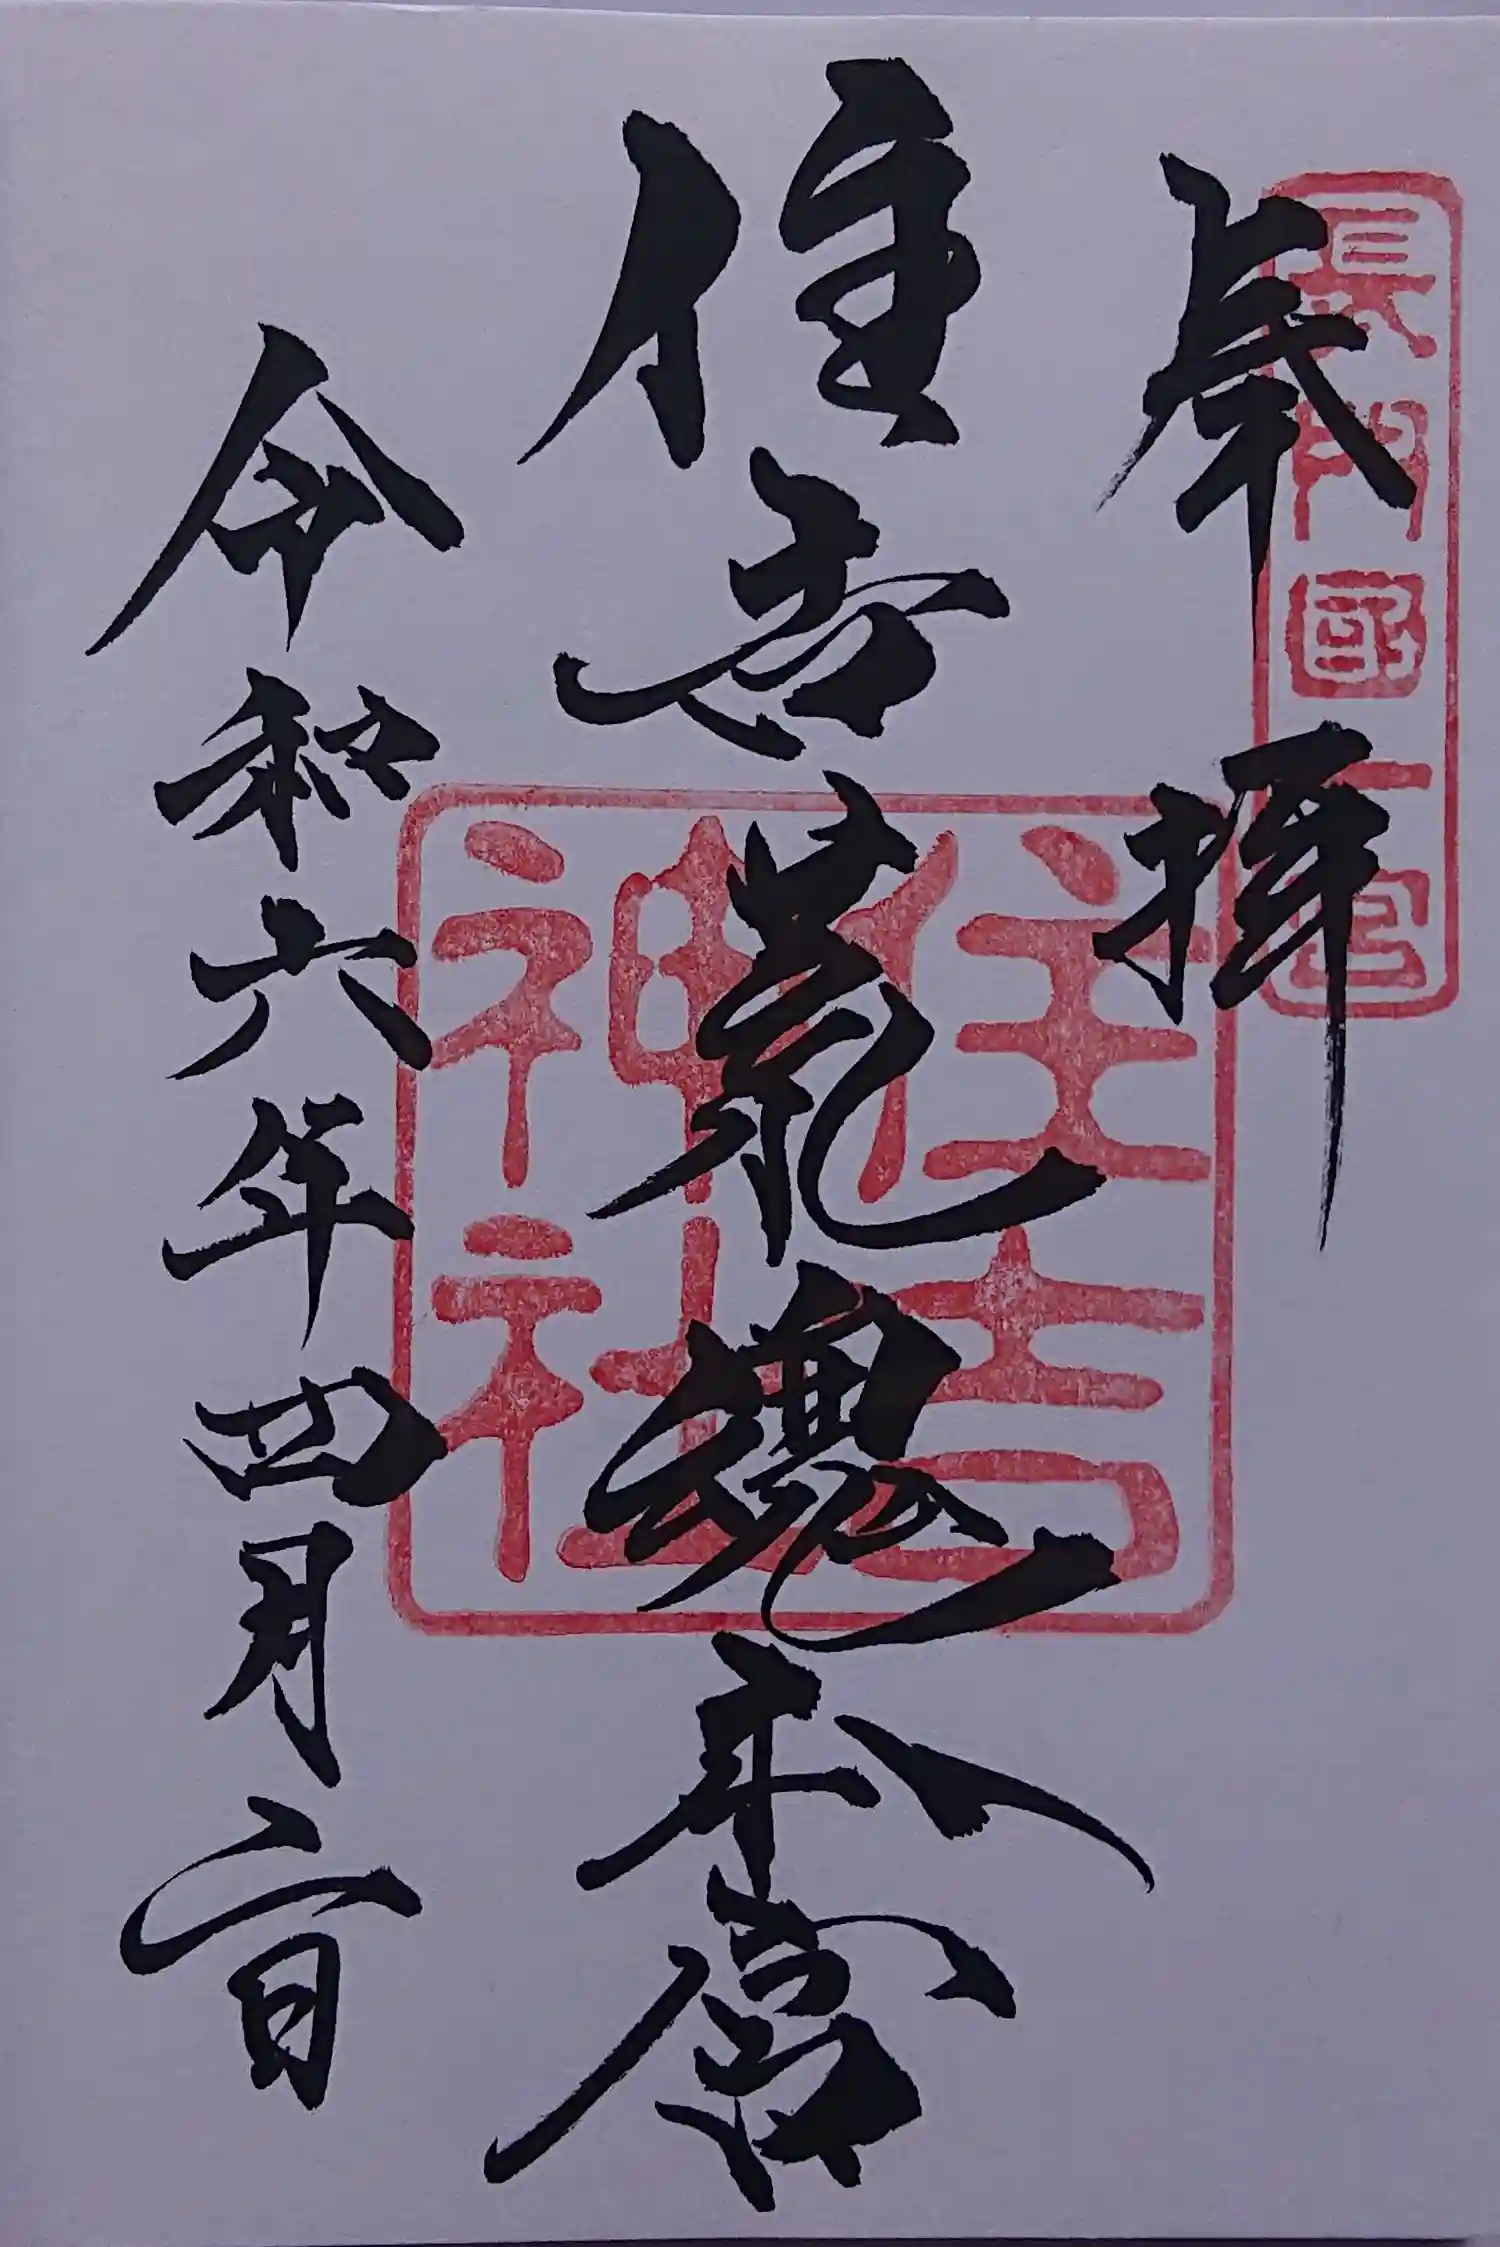 奉拝
長門國一宮
住吉荒魂本宮
住吉
神社
令和六年四月二日